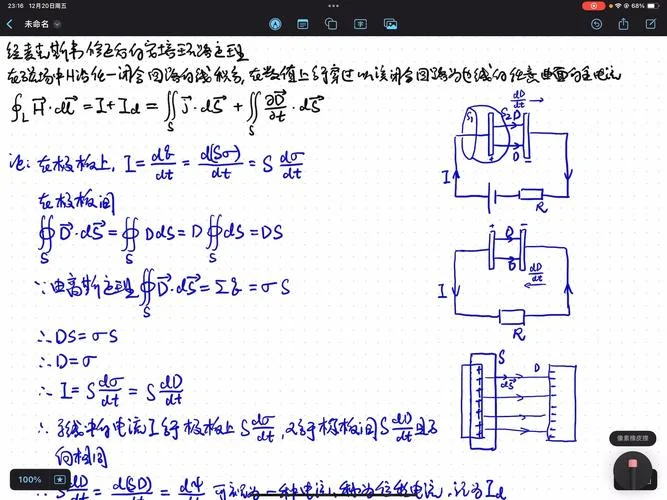 23:16 12月20日周五
68%
未命名
经麦克斯韦修正后的安培环路定理
在磁场中H沿任一闭合回路的线积分,在数值上等于穿过以该闭合回路为边线的任意曲面的全电流
∮_L H⃗·dl⃗ = I + I_d = ∬_S J⃗·dS⃗ + ∬_S ∂D⃗/∂t·dS⃗
在极板上, I = dq/dt = d(Sσ)/dt = S dσ/dt
在极板间
∯_S D⃗·dS⃗ = ∯_S DdS = D∯_S dS = DS
∵由高斯定理∯_S D⃗·dS⃗ = Σq = σS
∴DS = σS
∴D = σ
∴I = S dσ/dt = S dD/dt
∴导线中的电流I等于极板上 S dσ/dt, 又等于极板间 S dD/dt 且方
向相同
S dD/dt = d(SD)/dt = dψ/dt 可视为一种电流,称为位移电流,记为I_d
dD/dt →
S₁ S₂ D
+ −
D
I
R
+ −
D
D
dD/dt
I
R
S D
dS⃗
像素橡皮擦
100%